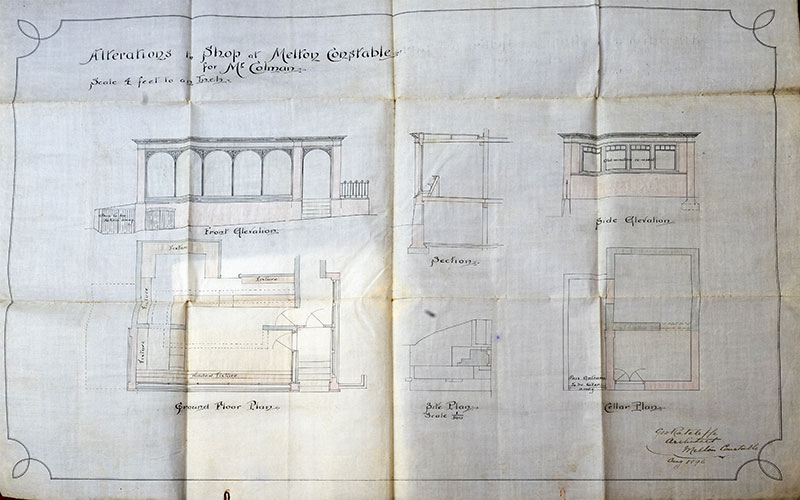 Alterations to Shop at Melton Constable
for Mr. Colman.
Scale 4 feet to an Inch.
Front Elevation
Section
Side Elevation
Fixture
Fixture
Fixture
Fixture
Window Fixture
Ground Floor Plan
Site Plan
Scale
Cellar Plan
Architect
Melton Constable
Aug 1896